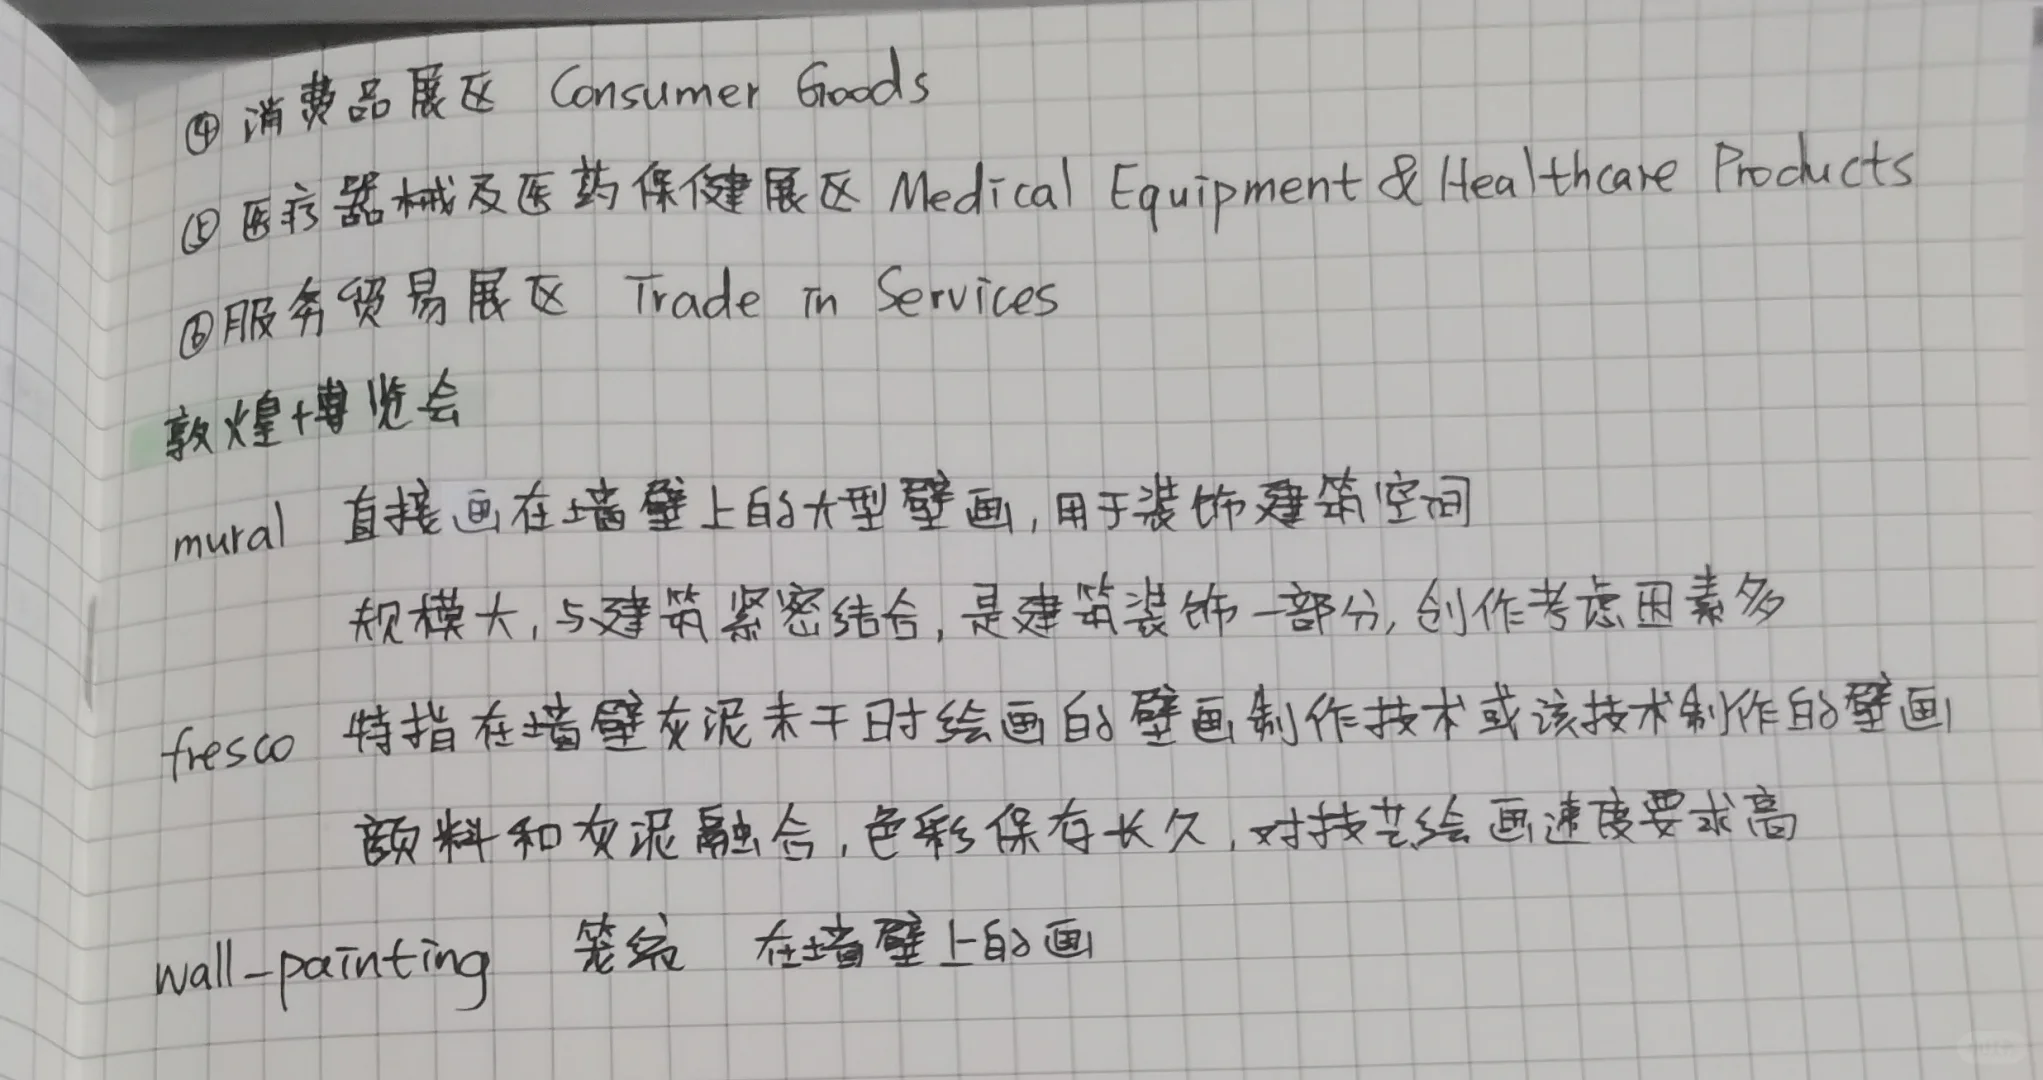 ④ 消费品展区 Consumer Goods
⑤ 医疗器械及医药保健展区 Medical Equipment & Healthcare Products
⑥ 服务贸易展区 Trade in Services
敦煌+博览会
mural 直接画在墙壁上的大型壁画,用于装饰建筑空间
规模大,与建筑紧密结合,是建筑装饰一部分,创作考虑因素多
fresco 特指在墙壁灰泥未干时绘画的壁画制作技术或该技术制作的壁画
颜料和灰泥融合,色彩保存长久,对技艺绘画速度要求高
wall-painting 笼统 在墙壁上的画